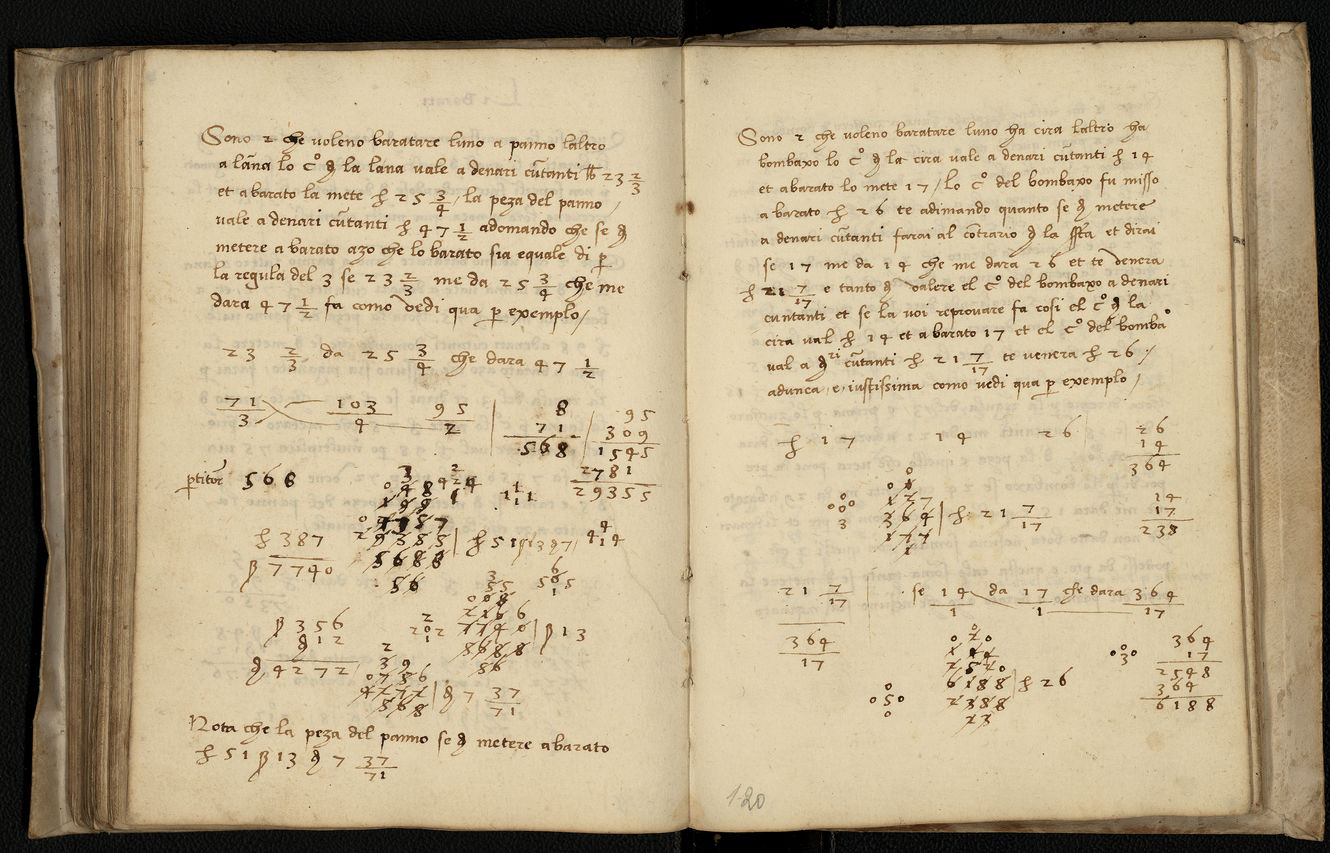 Sono 2 che voleno baratare luno a panno laltro
a lana lo c° la lana vale a denari cũtanti 23 2/3
et a barato la mete 25 3/4 / la peza del panno /
vale a denari cũtanti 47 1/2 adomando che se
metere a barato azo che lo barato sia equale di p
la regula del 3 se 23 2/3 me da 25 3/4 che me
dara 47 1/2 fa como vedi qua p exemplo /
23 2/3 da 25 3/4 che dara 47 1/2
71/3 103/4 95/2
8
71
568
95
309
1545
2781
29355
ptitor 568
387
7740
51
356
12
4272
13
7 37/71
Nota che la peza del panno se metere a barato
51 13 7 37/71
Sono 2 che voleno baratare luno ha cira laltro ha
bombaxo lo c° la cira vale a denari cũtanti 14
et a barato lo mete 17 / lo c° del bombaxo fu misso
a barato 26 te adimando quanto se metere
a denari cũtanti farai al cõtrario la et dirai
se 17 me da 14 che me dara 26 et te venera
21 7/17 e tanto valere el c° del bombaxo a denari
cuntanti et se la voi reprovare fa cosi el c° la
cira val 14 et a barato 17 et el c° del bomba°
val a cũtanti 21 7/17 te venera 26 /
adunca e iustissima como vedi qua p exemplo /
17 14 26
26
14
364
21 7/17
14
17
238
21 7/17 se 14/1 da 17/1 che dara 364/17
364/17
26
364
17
2548
364
6188
120